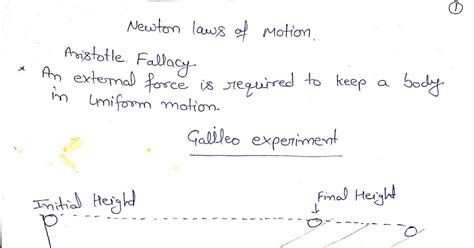 ①
Newton laws of Motion.
Aristotle Fallacy
* An external force is required to keep a body
in Uniform motion.
Galileo experiment
Initial Height
Final Height